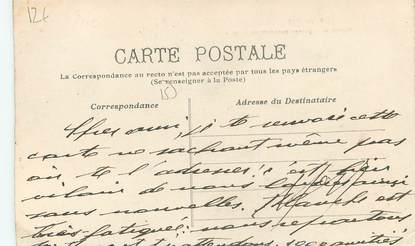 126
CARTE POSTALE
La Correspondance au recto n'est pas acceptée par tous les pays étrangers
(Se renseigner à la Poste)
15)
Correspondance
Adresse du Destinataire
Mes ami, je te renvoie cette
carte ne sachant même pas
où te l'adresser: c'est bien
vilain de nous laisser ainsi
sans nouvelles. Blanche est
très fatiguée; nous repartons